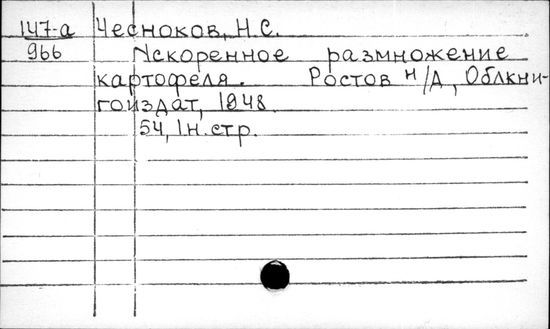 147-а Чесноков, Н.С.
966 Искоренное размножение
картофеля. Ростов н/Д, Облкни-
гоиздат, 1948.
54, 1н. стр.